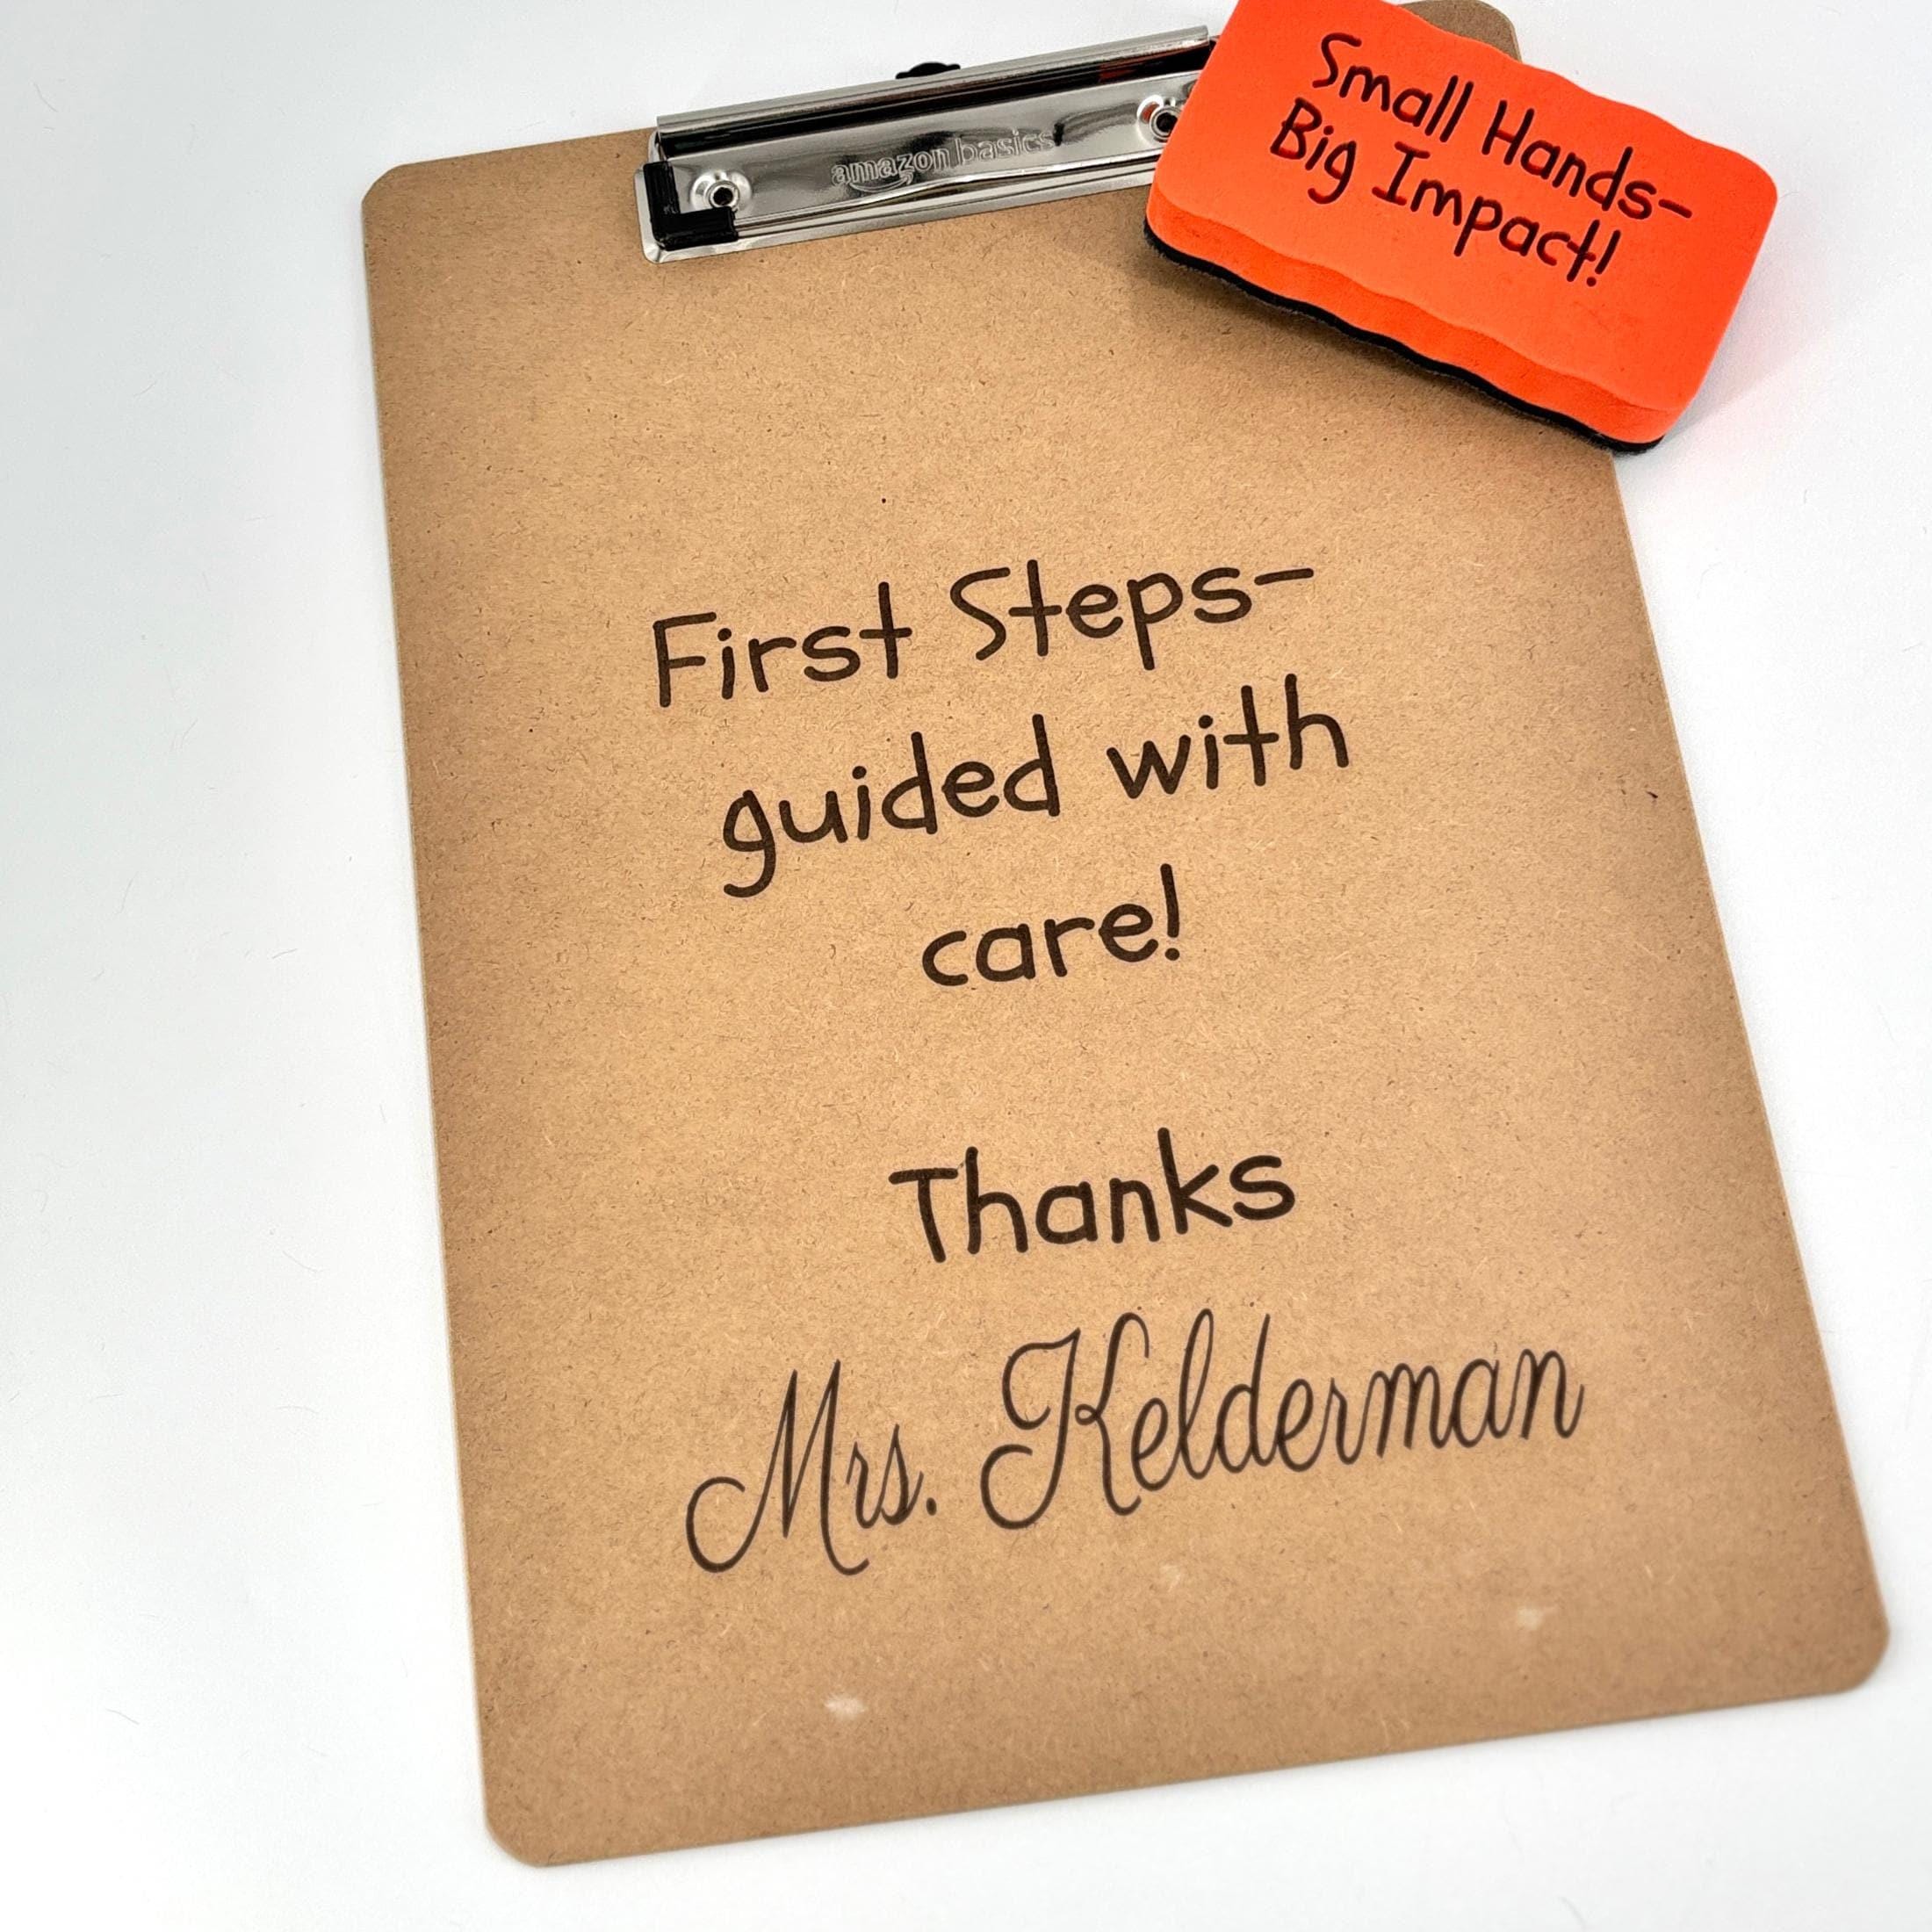 amazon basics
Small Hands-
Big Impact!
First Steps-
guided with
care!
Thanks
Mrs. Kelderman